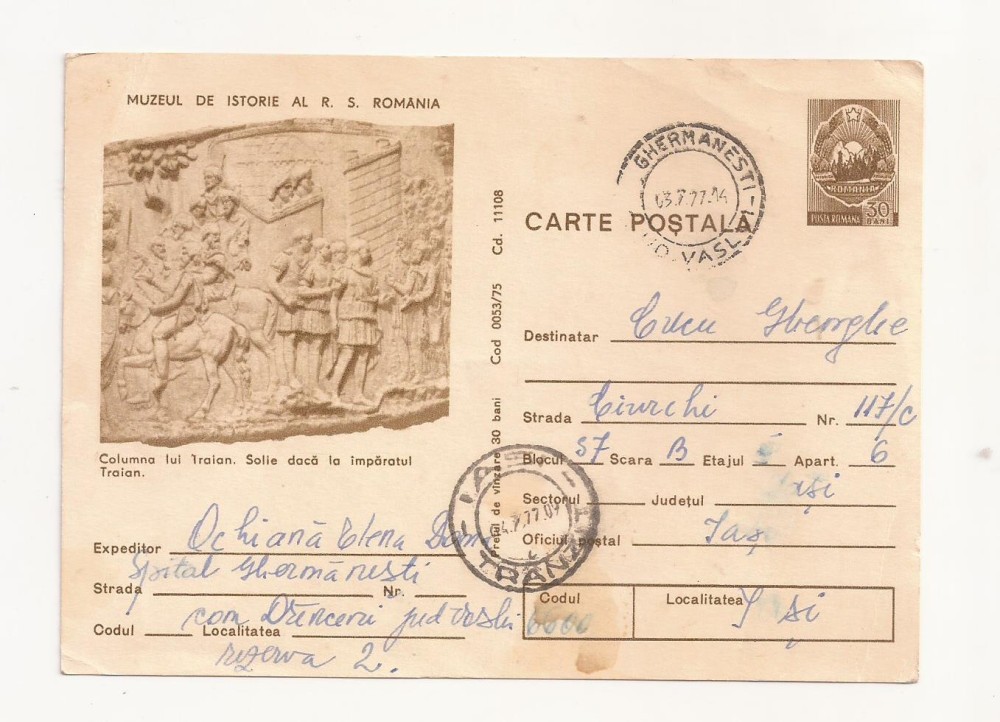 MUZEUL DE ISTORIE AL R. S. ROMÂNIA
Columna lui Traian. Solie dacă la împăratul
Traian.
Expeditor Ochiană Elena
Spital Ghermănești
Strada Nr.
com Drînceni jud Vaslui
Codul Localitatea
rezerva 2.
Prețul de vînzare 30 bani Cod 0053/75 Cd. 11108
GHERMANESTI
03.7.77.14
VASL
ROMANIA
POSTA ROMANA 30 BANI
CARTE POȘTALĂ
Destinatar Cucu Gheorghe
Strada Ciurchi Nr. 117/c
Blocul S7 Scara B Etajul Apart. 6
Sectorul Județul Iași
Oficiul poștal Iași
Codul 6600 Localitatea Iași
IASI
4.7.77.09
TRANZIT